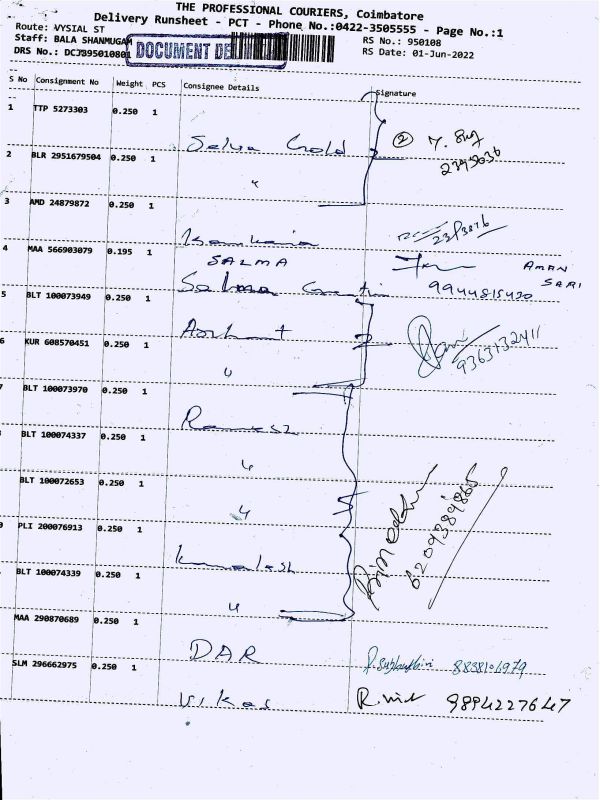 THE PROFESSIONAL COURIERS, Coimbatore
Delivery Runsheet - PCT - Phone No.:0422-3505555 - Page No.:1
Route: VYSIAL ST
RS No.: 950108
Staff: BALA SHANMUGAM
RS Date: 01-Jun-2022
DRS No.: DCJ395010801
DOCUMENT DE
S No Consignment No Weight PCS Consignee Details Signature
1 TTP 5273303 0.250 1
Selva Gold
2
2 BLR 2951679504 0.250 1
"
3 AMD 24879872 0.250 1
4 MAA 566903079 0.195 1
SALMA
AMAN
SARI
Salma Creation 9944815420
5 BLT 100073949 0.250 1
Arihant
6 KUR 608570451 0.250 1
"
9363132411
7 BLT 100073970 0.250 1
Ramesh
BLT 100074337 0.250 1
"
BLT 100072653 0.250 1
"
6209384865
PLI 200076913 0.250 1
Kamalesh
BLT 100074339 0.250 1
"
MAA 290870689 0.250 1
DAR 8838106979
SLM 296662975 0.250 1
Vikas 9894227647